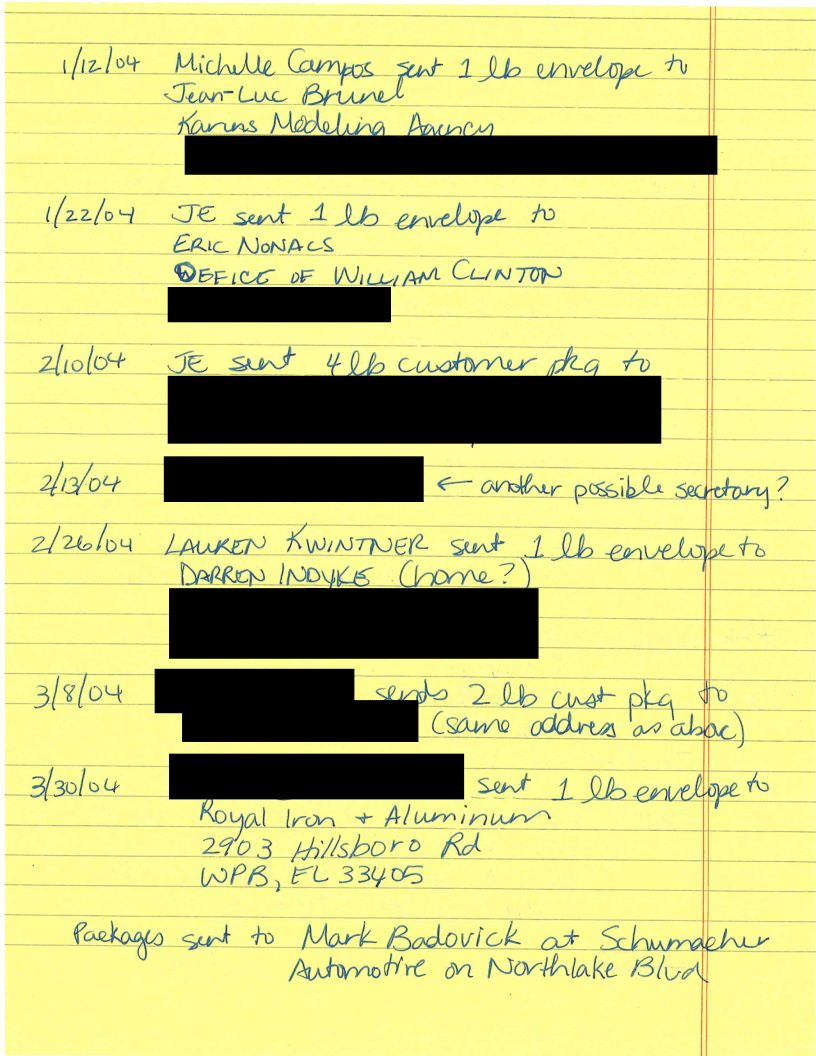 1/12/04 Michelle Campos sent 1 lb envelope to
Jean-Luc Brunel
Karins Modeling Agency
1/22/04 JE sent 1 lb envelope to
ERIC NONACS
OFFICE OF WILLIAM CLINTON
2/10/04 JE sent 4 lb customer pkg to
2/13/04 ← another possible secretary?
2/26/04 LAUREN KWINTNER sent 1 lb envelope to
DARREN INDYKE (home?)
3/8/04 sends 2 lb cust pkg to
(same address as above)
3/30/04 sent 1 lb envelope to
Royal Iron + Aluminum
2903 Hillsboro Rd
WPB, FL 33405
Packages sent to Mark Badovick at Schumacher
Automotive on Northlake Blvd